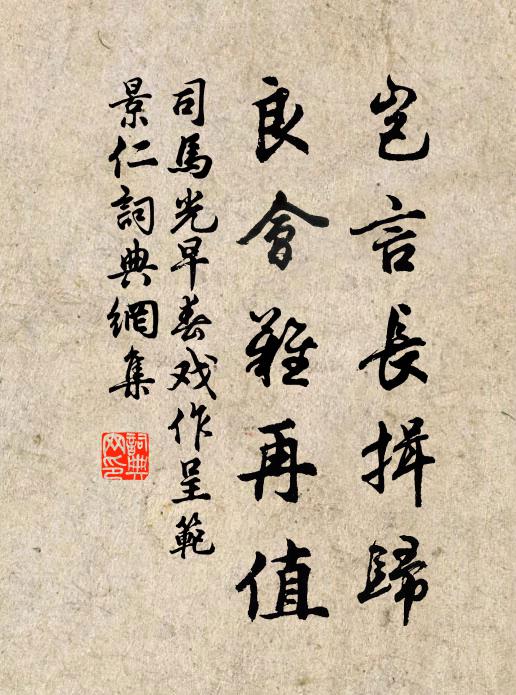 岂言長揖歸
良會難再值
司馬光早春戏作呈範
景仁詞典網集
詞典网印